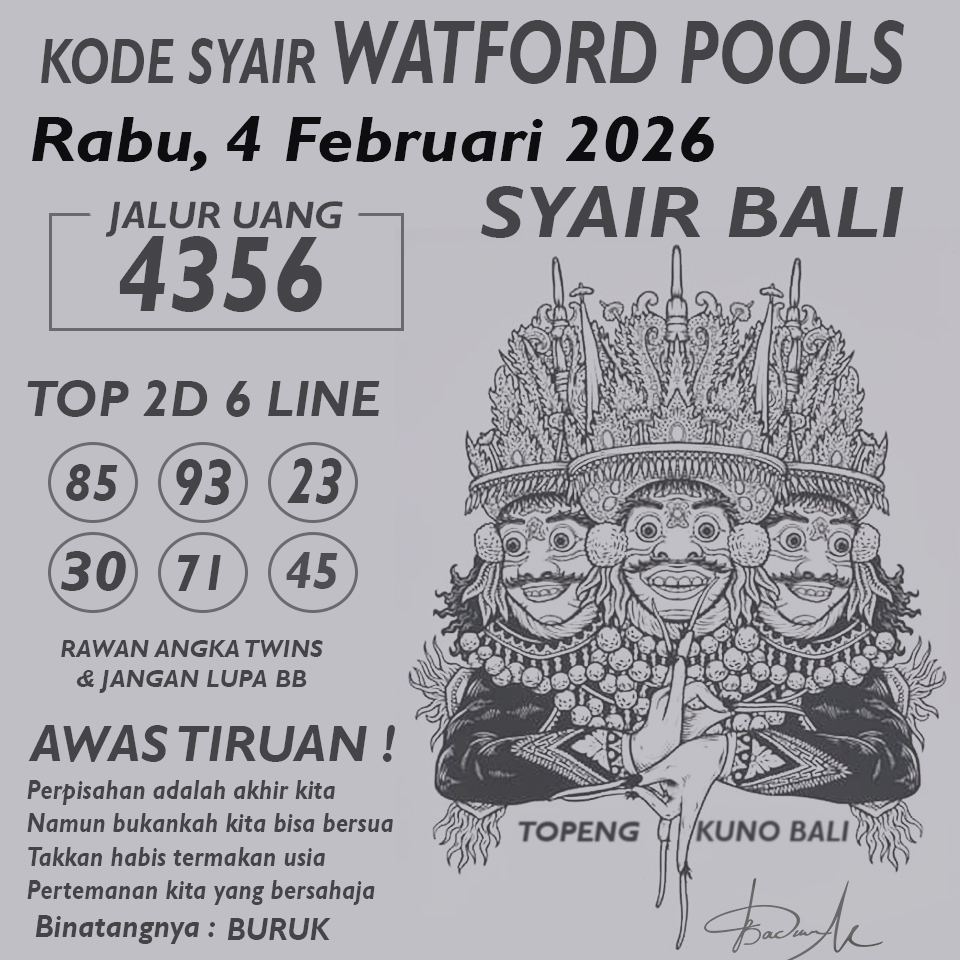 KODE SYAIR WATFORD POOLS
Rabu, 4 Februari 2026
SYAIR BALI
JALUR UANG
4356
TOP 2D 6 LINE
85 93 23
30 71 45
RAWAN ANGKA TWINS
& JANGAN LUPA BB
AWAS TIRUAN !
Perpisahan adalah akhir kita
Namun bukankah kita bisa bersua
Takkan habis termakan usia
Pertemanan kita yang bersahaja
Binatangnya : BURUK
TOPENG KUNO BALI